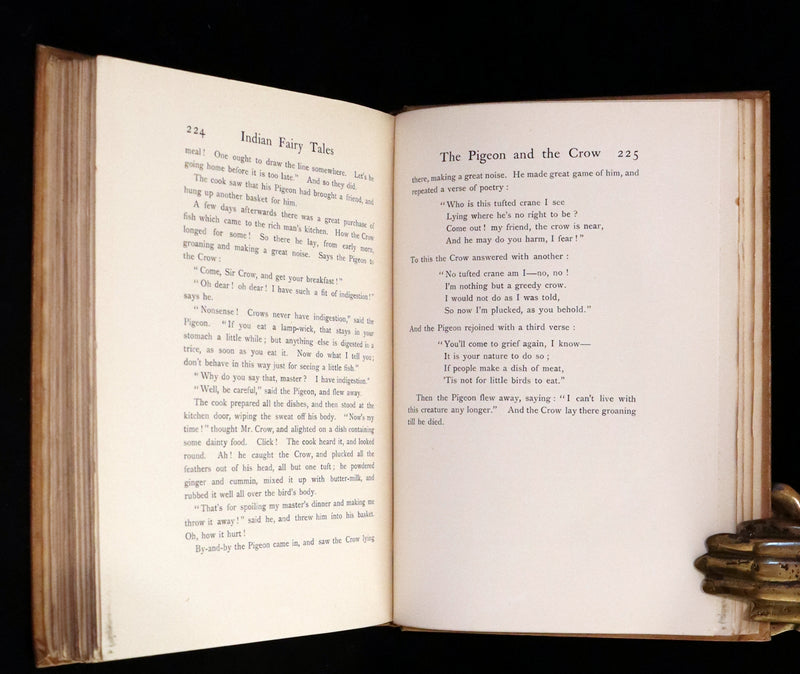 224 Indian Fairy Tales
meal! One ought to draw the line somewhere. Let's be
going home before it is too late." And so they did.
The cook saw that his Pigeon had brought a friend, and
hung up another basket for him.
A few days afterwards there was a great purchase of
fish which came to the rich man's kitchen. How the Crow
longed for some! So there he lay, from early morn,
groaning and making a great noise. Says the Pigeon to
the Crow:
"Come, Sir Crow, and get your breakfast!"
"Oh dear! oh dear! I have such a fit of indigestion!"
says he.
"Nonsense! Crows never have indigestion," said the
Pigeon. "If you eat a lamp-wick, that stays in your
stomach a little while; but anything else is digested in a
trice, as soon as you eat it. Now do what I tell you;
don't behave in this way just for seeing a little fish."
"Why do you say that, master? I have indigestion."
"Well, be careful," said the Pigeon, and flew away.
The cook prepared all the dishes, and then stood at the
kitchen door, wiping the sweat off his body. "Now's my
time!" thought Mr. Crow, and alighted on a dish containing
some dainty food. Click! The cook heard it, and looked
round. Ah! he caught the Crow, and plucked all the
feathers out of his head, all but one tuft; he powdered
ginger and cummin, mixed it up with butter-milk, and
rubbed it well all over the bird's body.
"That's for spoiling my master's dinner and making me
throw it away!" said he, and threw him into his basket.
Oh, how it hurt!
By-and-by the Pigeon came in, and saw the Crow lying
The Pigeon and the Crow 225
there, making a great noise. He made great game of him, and
repeated a verse of poetry:
"Who is this tufted crane I see
Lying where he's no right to be?
Come out! my friend, the crow is near,
And he may do you harm, I fear!"
To this the Crow answered with another:
"No tufted crane am I—no, no!
I'm nothing but a greedy crow.
I would not do as I was told,
So now I'm plucked, as you behold."
And the Pigeon rejoined with a third verse:
"You'll come to grief again, I know—
It is your nature to do so;
If people make a dish of meat,
'Tis not for little birds to eat."
Then the Pigeon flew away, saying: "I can't live with
this creature any longer." And the Crow lay there groaning
till he died.